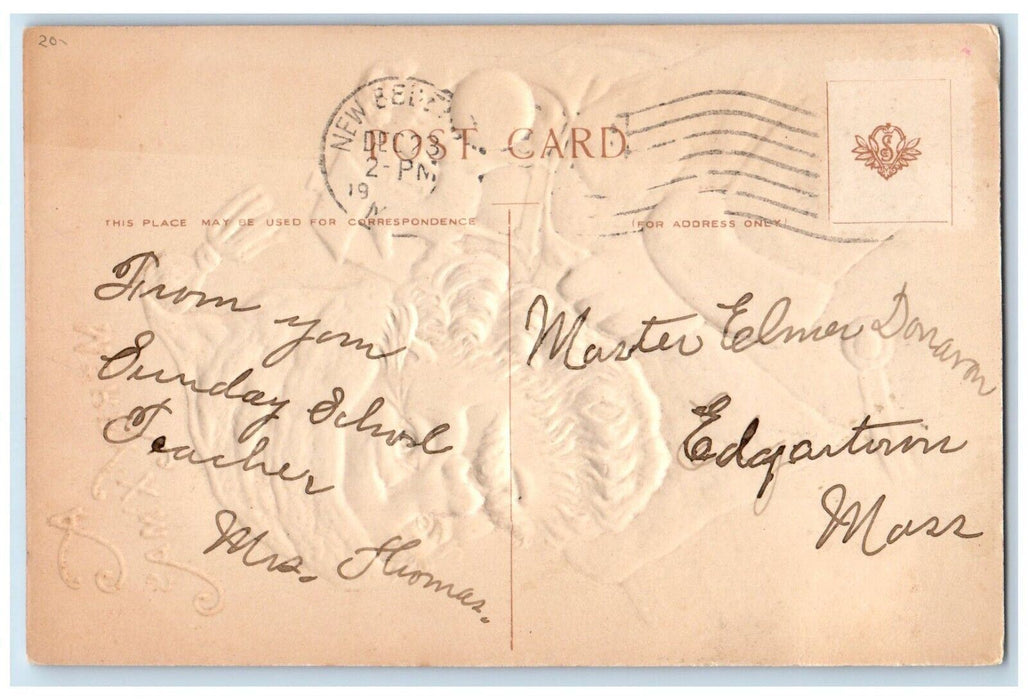 20-
NEW BEDF
DEC 23
2- PM
19
POST CARD
THIS PLACE MAY BE USED FOR CORRESPONDENCE
(FOR ADDRESS ONLY)
From your
Sunday School
Teacher
Mrs. Thomas.
Master Elmer Donavon
Edgartown
Mass
A MERRY
XMAS